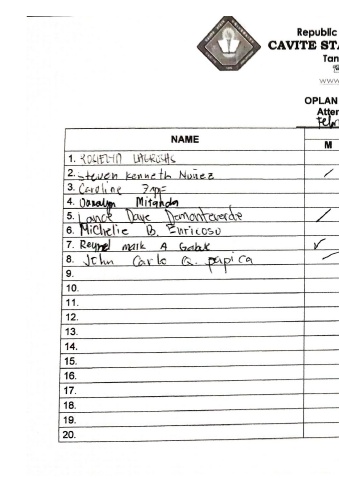 Republic
CAVITE STA
Tan
www
OPLAN
Atten
Feb
NAME
M
1.
2. Steven Kenneth Nuñez
3. Caroline
4. Miranda
5. Lance Dave Demonteverde
6. Michelle B. Enricoso
7. Reymel mark A
8. John Carlo Q. papica
9.
10.
11.
12.
13.
14.
15.
16.
17.
18.
19.
20.